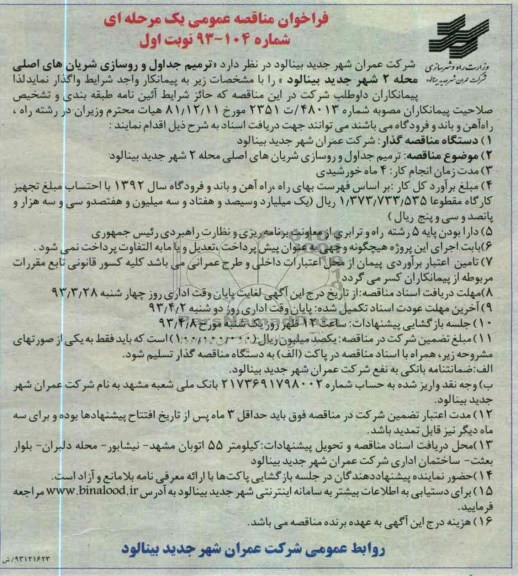 فراخوان مناقصه عمومی یک مرحله ای
شماره ۱۰۴-۹۳ نوبت اول
وزارت راه و شهرسازی
شرکت عمران شهر جدید بینالود
شرکت عمران شهر جدید بینالود در نظر دارد «ترمیم جداول و روسازی شریان های اصلی
محله ۲ شهر جدید بینالود » را با مشخصات زیر به پیمانکار واجد شرایط واگذار نماید لذا
پیمانکاران داوطلب شرکت در این مناقصه که حائز شرایط آئین نامه طبقه بندی و تشخیص
صلاحیت پیمانکاران مصوبه شماره ۴۸۰۱۳/ت ۲۳۵۱ مورخ ۸۱/۱۲/۱۱ هیات محترم وزیران در رشته راه ،
راه‌آهن و باند و فرودگاه می باشند می توانند جهت دریافت اسناد به شرح ذیل اقدام نمایند :
۱) دستگاه مناقصه گذار: شرکت عمران شهر جدید بینالود
۲) موضوع مناقصه: ترمیم جداول و روسازی شریان های اصلی محله ۲ شهر جدید بینالود
۳) مدت زمان انجام کار: ۴ ماه خورشیدی
۴) مبلغ برآورد کل کار :بر اساس فهرست بهای راه ،راه آهن و باند و فرودگاه سال ۱۳۹۲ با احتساب مبلغ تجهیز
کارگاه مقطوعا ۱/۳۷۳/۷۳۳/۵۳۵ ریال (یک میلیارد و سیصد و هفتاد و سه میلیون و هفتصد و سی و سه هزار و
پانصد و سی و پنج ریال )
۵) دارا بودن پایه ۵ رشته راه و ترابری از معاونت برنامه ریزی و نظارت راهبردی رئیس جمهوری
۶) بابت اجرای این پروژه هیچگونه وجهی به عنوان پیش پرداخت ،تعدیل و یا مابه التفاوت پرداخت نمی شود .
۷) تامین اعتبار برآوردی پیمان از محل اعتبارات داخلی و طرح عمرانی می باشد کلیه کسور قانونی تابع مقررات
مربوطه از پیمانکاران کسر می گردد
۸)مهلت دریافت اسناد مناقصه:از تاریخ درج این آگهی لغایت پایان وقت اداری روز چهار شنبه ۹۳/۳/۲۸
۹) آخرین مهلت عودت اسناد تکمیل شده: پایان وقت اداری روز دو شنبه ۹۳/۴/۲
۱۰) جلسه بازگشایی پیشنهادات: ساعت ۱۲ ظهر روز یک شنبه مورخ ۹۳/۴/۸
۱۱) مبلغ تضمین شرکت در مناقصه: یکصد میلیون ریال(۱۰۰/۰۰۰/۰۰۰) است که باید فقط به یکی از صورتهای
مشروحه زیر، همراه با اسناد مناقصه در پاکت (الف) به دستگاه مناقصه گذار تسلیم شود.
الف:ضمانتنامه بانکی به نفع شرکت عمران شهر جدید بینالود.
ب) وجه نقد واریز شده به حساب شماره ۲۱۷۳۶۹۱۷۹۸۰۰۲ بانک ملی شعبه مشهد به نام شرکت عمران شهر
جدید بینالود.
۱۲) مدت اعتبار تضمین شرکت در مناقصه فوق باید حداقل ۳ ماه پس از تاریخ افتتاح پیشنهادها بوده و برای سه
ماه دیگر نیز قابل تمدید باشد.
۱۳)محل دریافت اسناد مناقصه و تحویل پیشنهادات:کیلومتر ۵۵ اتوبان مشهد- نیشابور- محله دلبران- بلوار
بعثت- ساختمان اداری شرکت عمران شهر جدید بینالود
۱۴)حضور نماینده پیشنهاددهندگان در جلسه بازگشایی پاکت‌ها با ارائه معرفی نامه بلامانع و آزاد است.
۱۵) برای دستیابی به اطلاعات بیشتر به سامانه اینترنتی شهر جدید بینالود به آدرس www.binalood.ir مراجعه
فرمایید.
۱۶) هزینه درج این آگهی به عهده برنده مناقصه می باشد.
روابط عمومی شرکت عمران شهر جدید بینالود
۹۳۱۲۱۶۲۳/ش